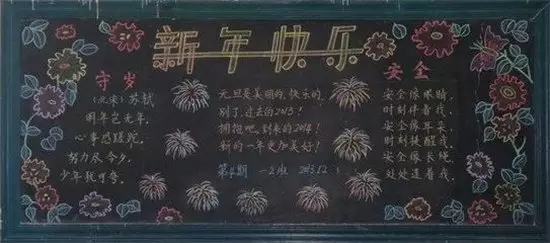 新年快乐
守岁
(北宋) 苏轼
明年岂无年,
心事恐蹉跎。
努力尽今夕,
少年犹可夸。
元旦是美丽的,快乐的,
别了,过去的2013!
拥抱吧,到来的2014!
新的一年更加美好!
第4期 一2班 2013.12
安全
安全像眼睛,
时刻伴着我,
安全像耳朵,
时刻提醒我,
安全像长绳,
处处连着我。